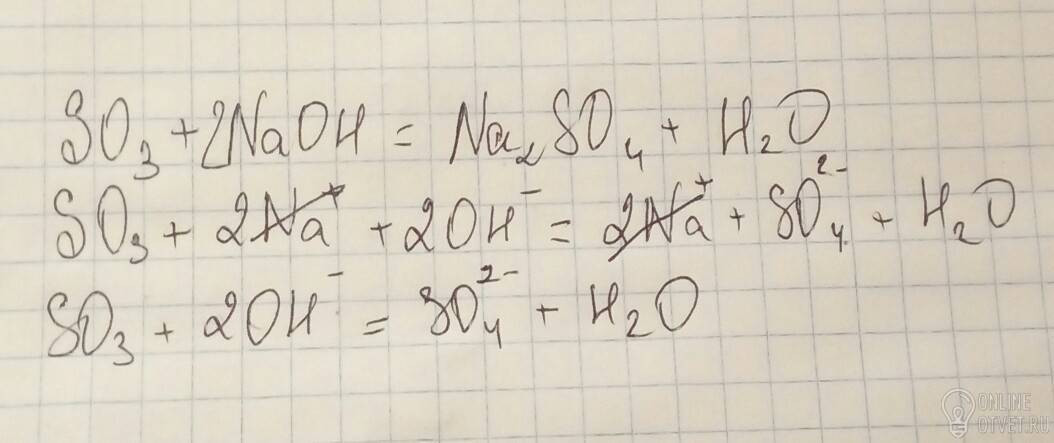 SO₃ + 2NaOH = Na₂SO₄ + H₂O
SO₃ + 2Na⁺ + 2OH⁻ = 2Na⁺ + SO₄²⁻ + H₂O
SO₃ + 2OH⁻ = SO₄²⁻ + H₂O
ONLINE
OTVET.RU